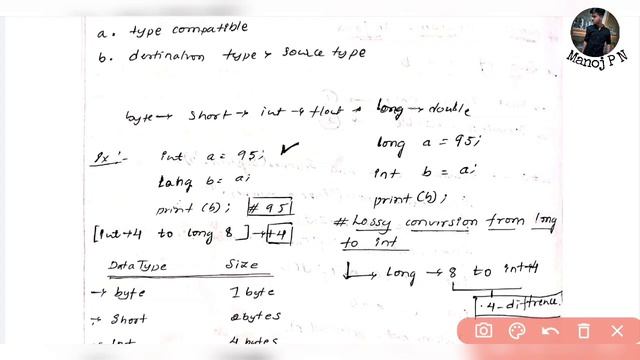 a. type compatible
b. destination type > source type
byte → short → int → float → long → double
Ex:- int a = 95; ✓
lang b = a;
print (b); # 95
[int → 4 to long 8] → +4
Data Type Size
→ byte 1 byte
→ Short 2 bytes
→ Int 4 bytes
long a = 95;
int b = a;
print (b);
# Lossy conversion from long
to int
↳ Long → 8 to int → 4
4-diffrence
Manoj P N